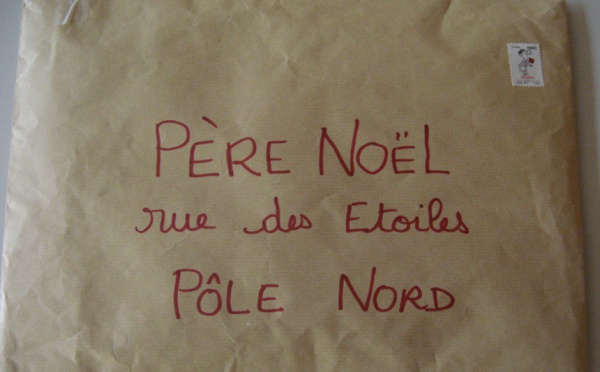 PÈRE NOËL
rue des Etoiles
PÔLE NORD